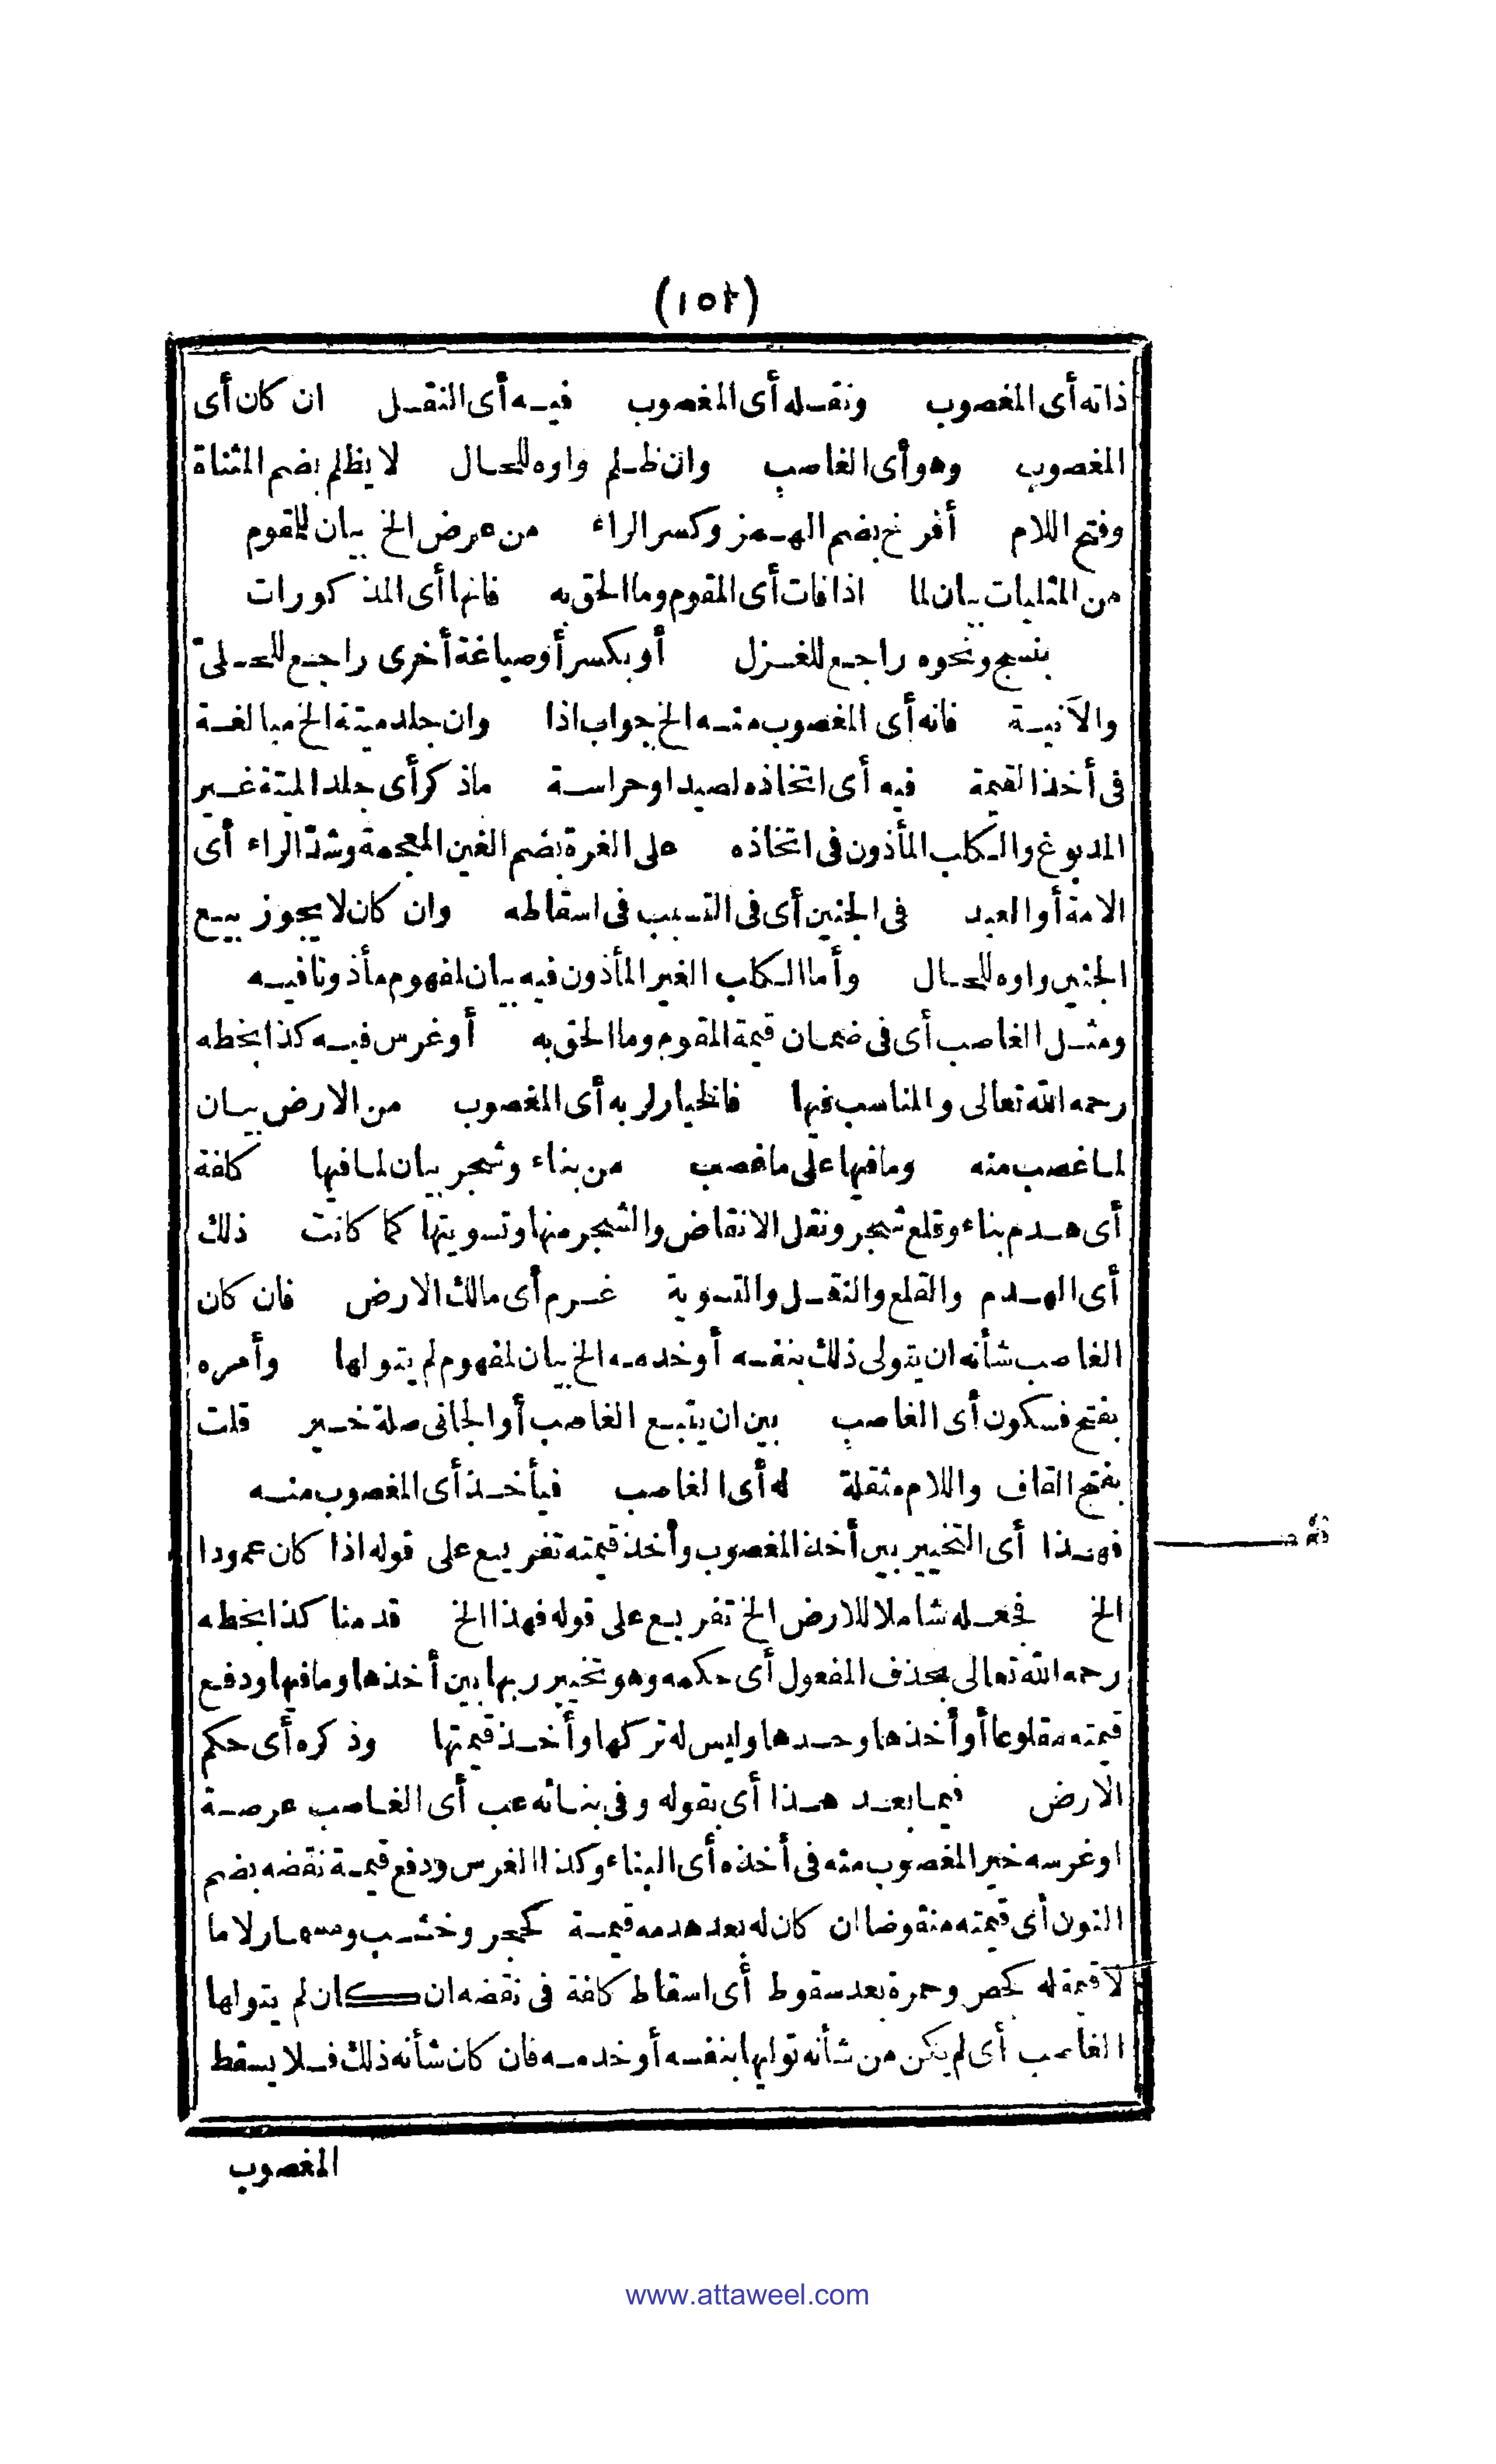 (١٥٢)
ذاته أى المغصوب ونقله أى المغصوب فيه أى النقل ان كان أى
المغصوب وهو أى الغاصب وان ظلم واوه للحال لا يظلم بضم المثناة
وفتح اللام أفرخ بضم الهمز وكسر الراء من عرض الخ بيان للمقوم
من المثليات بيان لما اذا فات أى المقوم وما الحق به فانها أى المذكورات
بنسج ونحوه راجع للغزل أو بكسر أو صياغة أخرى راجع للحلى
والآنية فانه أى المغصوب منه الخ جواب اذا وان جلد ميتة الخ مبالغة
فى أخذ القيمة فيه أى اتخاذه لصيد او حراسة ماذكر أى جلد الميتة غير
المدبوغ والكلب المأذون فى اتخاذه على الغرة بضم الغين المعجمة وشد الراء أى
الامة أو العبد فى الجنين أى فى التسبب فى اسقاطه وان كان لا يجوز بيع
الجنين واوه للحال وأما الكلب الغير المأذون فيه بيان لمفهوم مأذونا فيه
ومثل الغاصب أى فى ضمان قيمة المقوم وما الحق به أو غرس فيه كذا بخطه
رحمه الله تعالى والمناسب فيها فالخيار لربه أى المغصوب من الارض بيان
لما غصب منه وما فيها على ما غصب من بناء وشجر بيان لما فيها كلفة
أى هدم بناء وقلع شجر ونقل الانقاض والشجر منها وتسويتها كما كانت ذلك
أى الهدم والقلع والنقل والتسوية غرم أى مالك الارض فان كان
الغاصب شأنه ان يتولى ذلك بنفسه أو خدمه الخ بيان لمفهوم لم يتولها وأمره
بفتح فسكون أى الغاصب بين ان يتبع الغاصب أو الجانى صلة خير قلت
بفتح القاف واللام مثقلة له أى الغاصب فيأخذ أى المغصوب منه
فهذا أى التخيير بين أخذ المغصوب وأخذ قيمته تفريع على قوله اذا كان عمودا
الخ فجعله شاملا للارض الخ تفريع على قوله فهذا الخ قدمنا كذا بخطه
رحمه الله تعالى بحذف المفعول أى حكمه وهو تخيير ربها بين أخذها وما فيها ودفع
قيمته مقلوعا أو أخذها وحدها وليس له تركها وأخذ قيمتها وذكره أى حكم
الارض فيما بعد هذا أى بقوله وفى بنائه عب أى الغاصب عرصة
او غرسه خير المغصوب منه فى أخذه أى البناء وكذا الغرس ودفع قيمة نقضه بضم
النون أى قيمته منقوضا ان كان له بعد هدمه قيمة كحجر وخشب ومسمار لا ما
لا قيمة له كجص وحمرة بعد سقوط أى اسقاط كلفة فى نقضه ان كان لم يتولها
الغاصب أى لم يكن من شأنه توليها بنفسه أو خدمه فان كان شأنه ذلك فلا يسقط
المغصوب
www.attaweel.com